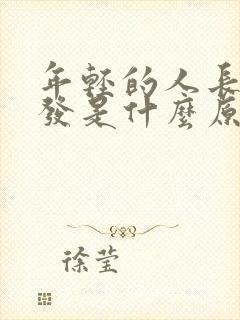 年轻的人長
發是什麼原
徐莹